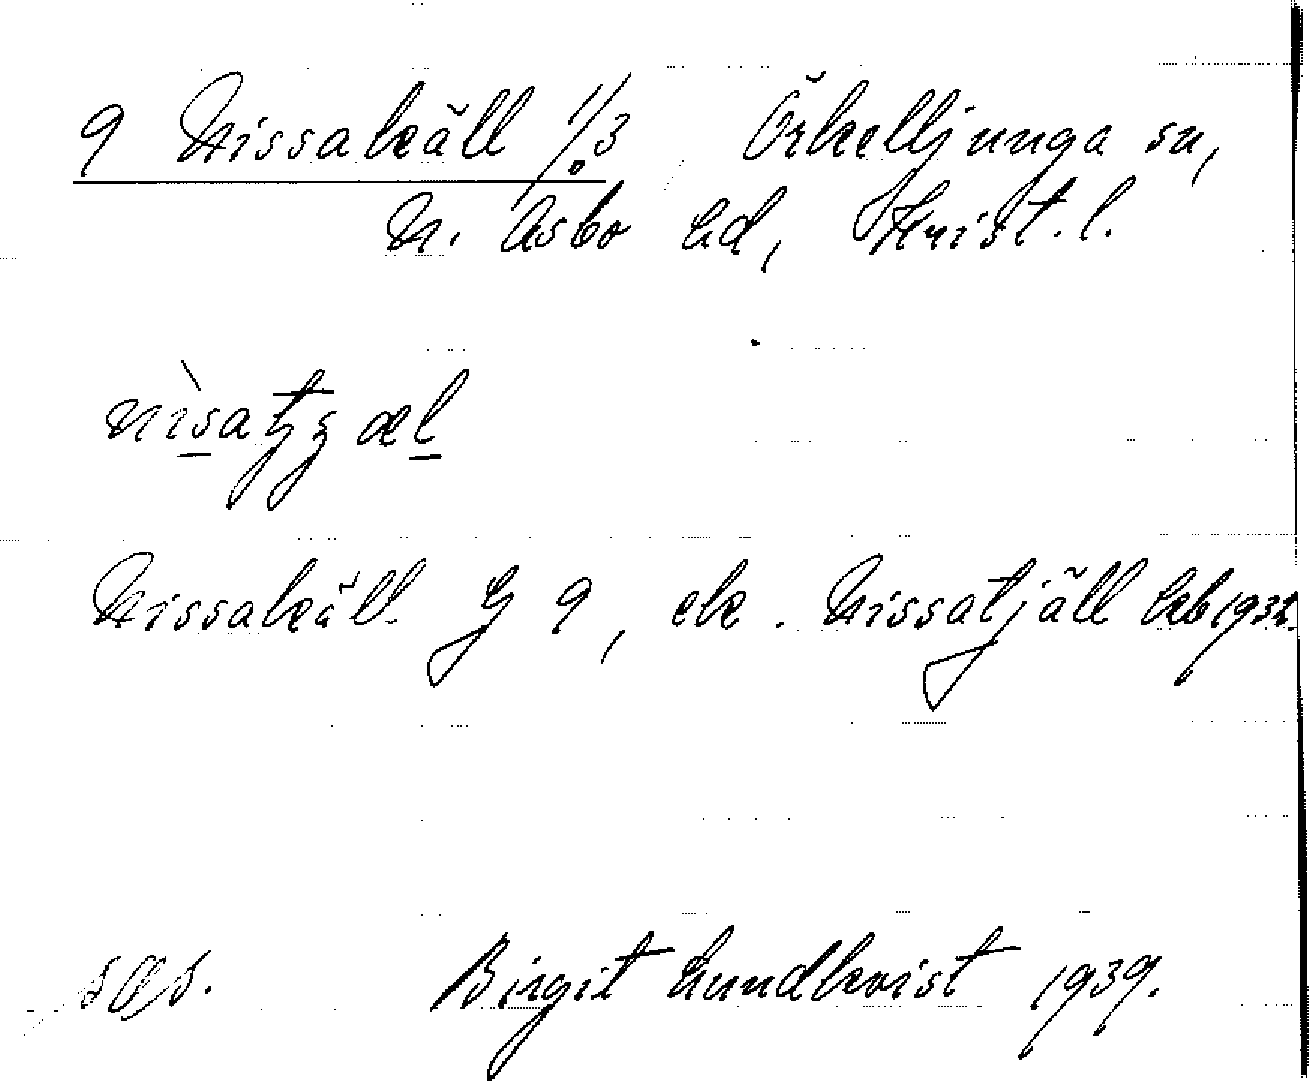 9 Nissakäll 1/3 Örkelljunga sn,
N. Åsbo hd, Krist. l.
Nissakäll G 9, ek. Nissatjäll hkb 1932.
sgs. Birgit Lundkvist 1939.